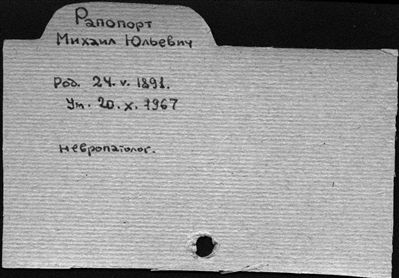 Рапопорт
Михаил Юльевич
Род. 24.v.1891.
Ум. 20.x.1967
невропатолог.